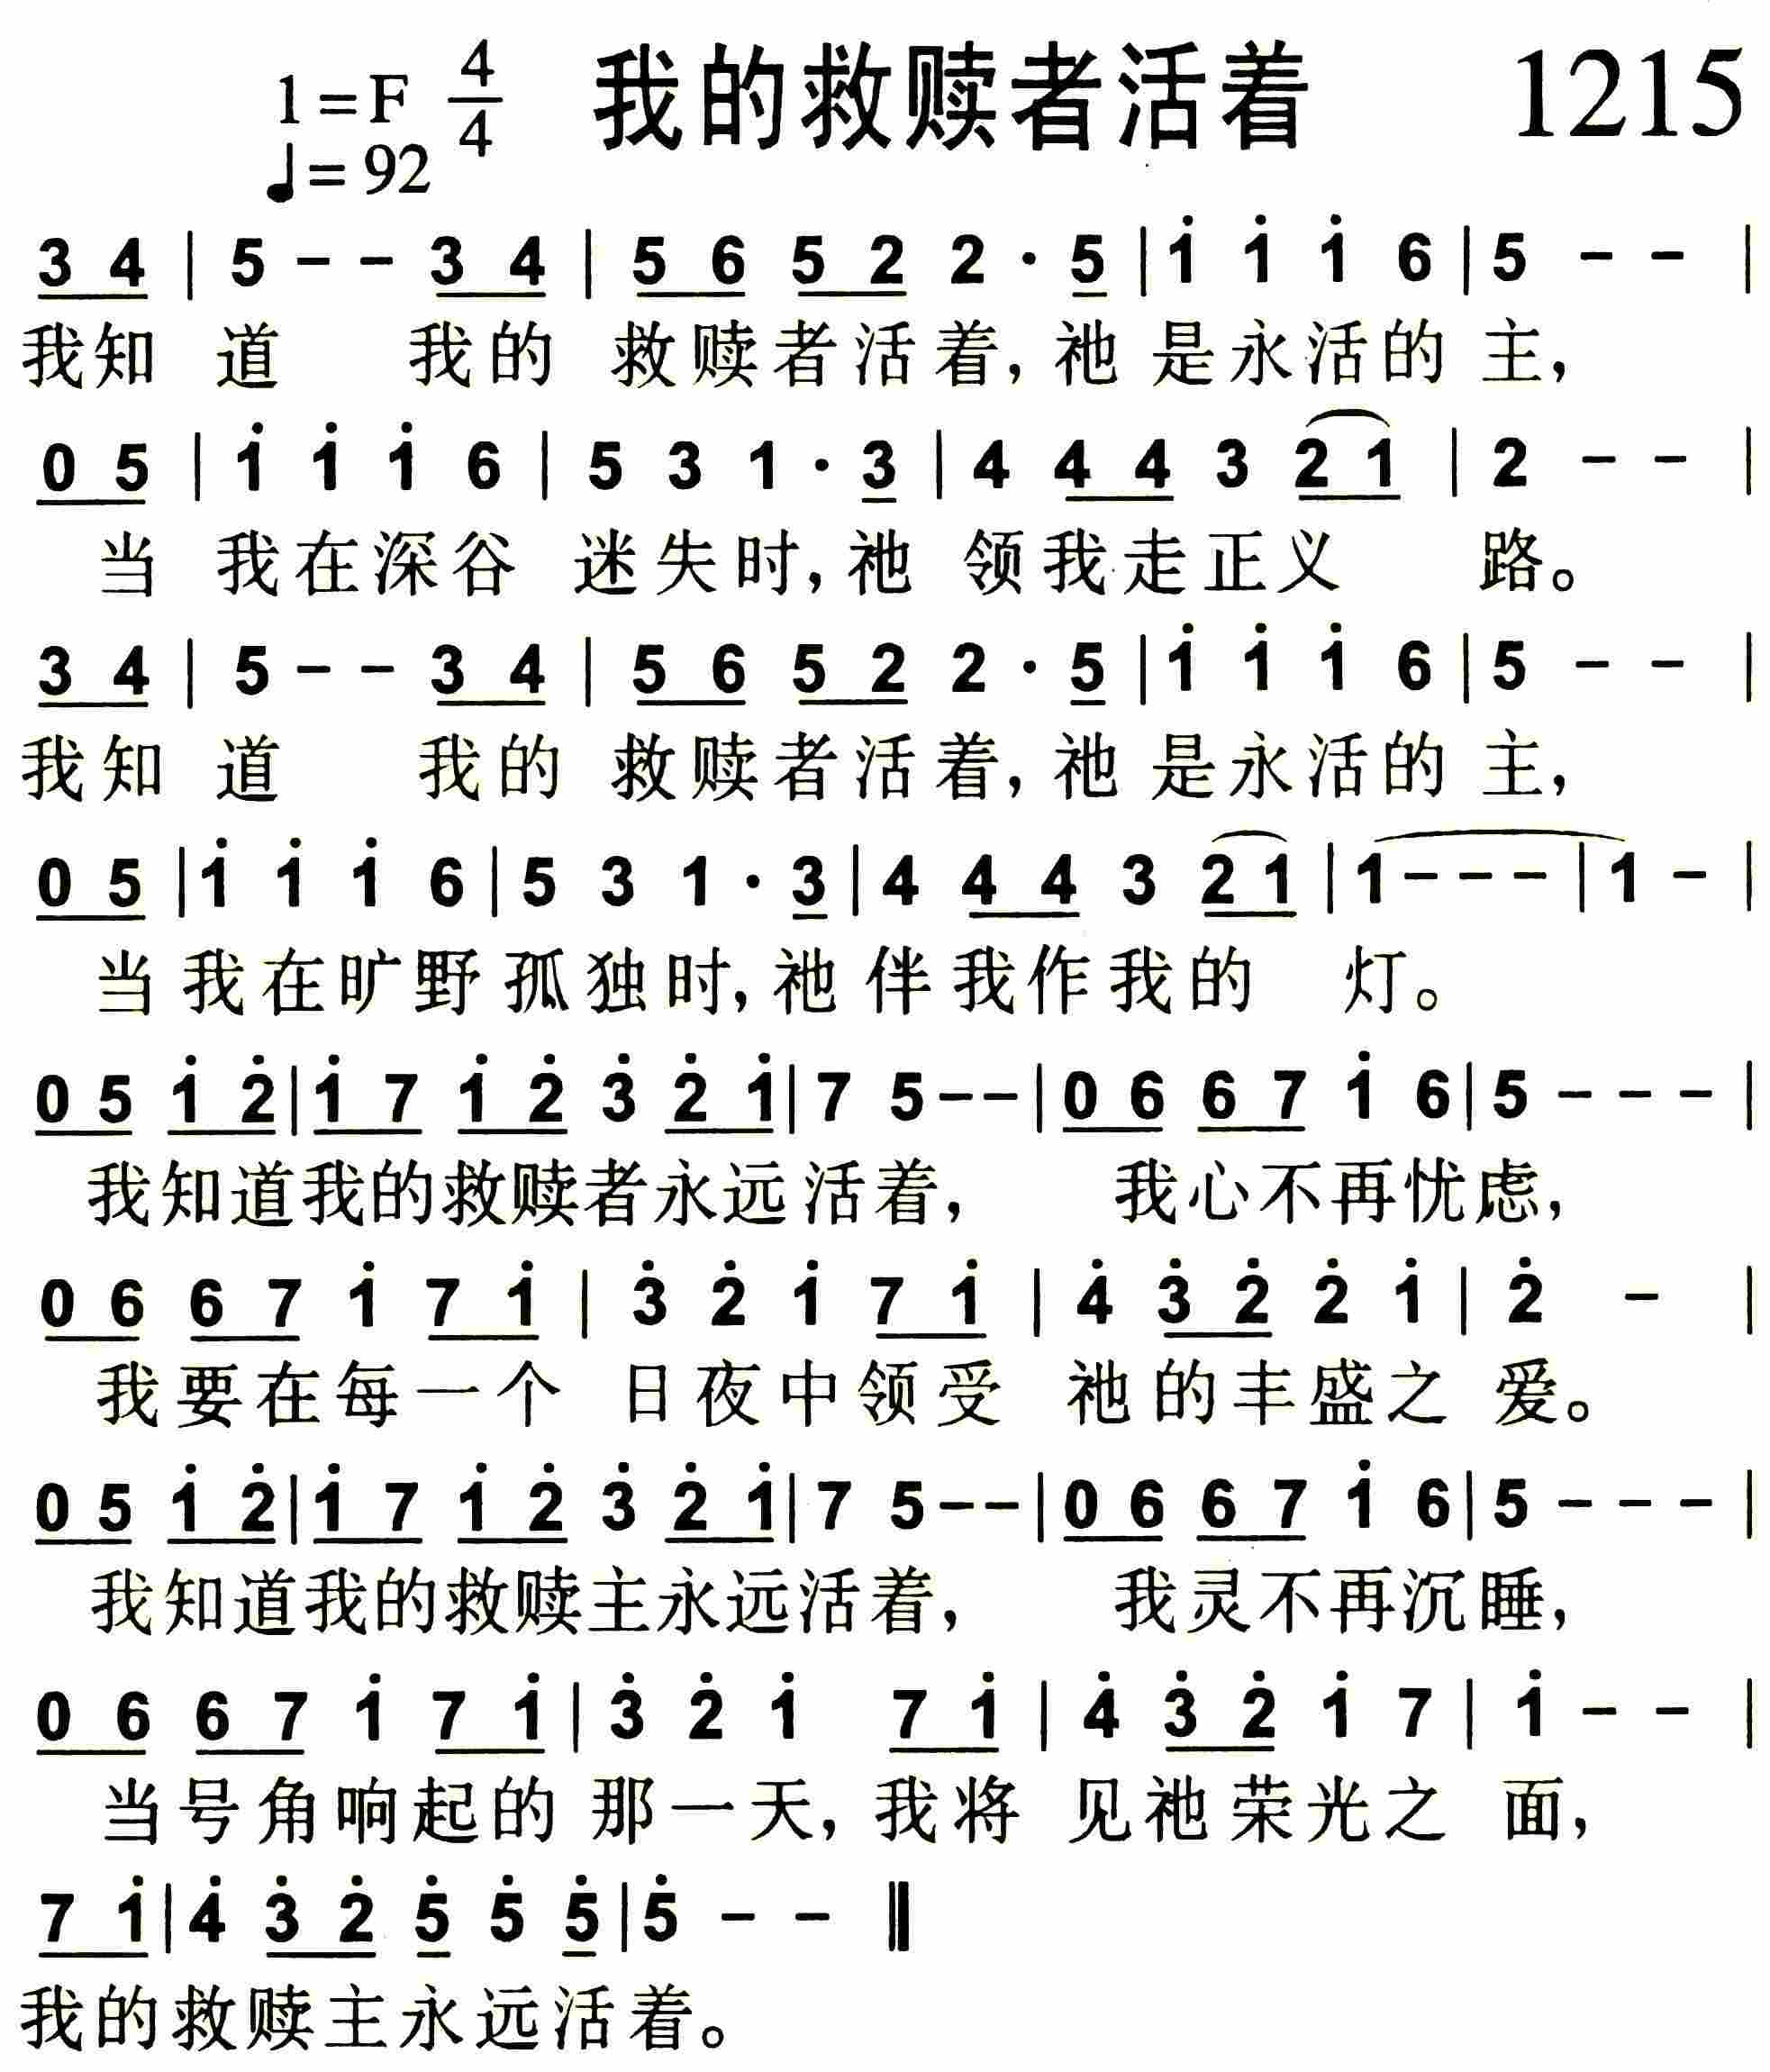 1=F 4/4 我的救赎者活着 1215
♩=92
3 4 | 5 - - 3 4 | 5 6 5 2 2 · 5 | 1̇ 1̇ 1̇ 6 | 5 - - |
我知 道 我的 救赎者活着,祂 是永活的 主,
0 5 | 1̇ 1̇ 1̇ 6 | 5 3 1 · 3 | 4 4 4 3 2 1 | 2 - - |
当 我在深谷 迷失时,祂 领我走正义 路。
3 4 | 5 - - 3 4 | 5 6 5 2 2 · 5 | 1̇ 1̇ 1̇ 6 | 5 - - |
我知 道 我的 救赎者活着,祂 是永活的 主,
0 5 | 1̇ 1̇ 1̇ 6 | 5 3 1 · 3 | 4 4 4 3 2 1 | 1 - - - | 1 - |
当 我在旷野 孤独时,祂 伴我作我的 灯。
0 5 1̇ 2̇ | 1̇ 7 1̇ 2̇ 3̇ 2̇ 1̇ | 7 5 - - | 0 6 6 7 1̇ 6 | 5 - - - |
我知道我的救赎者永远活着, 我心不再忧虑,
0 6 6 7 1̇ 7 1̇ | 3̇ 2̇ 1̇ 7 1̇ | 4̇ 3̇ 2̇ 2̇ 1̇ | 2̇ - |
我要在每一个 日夜中领受 祂的丰盛之 爱。
0 5 1̇ 2̇ | 1̇ 7 1̇ 2̇ 3̇ 2̇ 1̇ | 7 5 - - | 0 6 6 7 1̇ 6 | 5 - - - |
我知道我的救赎主永远活着, 我灵不再沉睡,
0 6 6 7 1̇ 7 1̇ | 3̇ 2̇ 1̇ 7 1̇ | 4̇ 3̇ 2̇ 1̇ 7 | 1̇ - - |
当号角响起的 那一天,我将 见祂荣光之 面,
7 1̇ | 4̇ 3̇ 2̇ 5̇ 5̇ 5̇ | 5̇ - - ‖
我的救赎主永远活着。